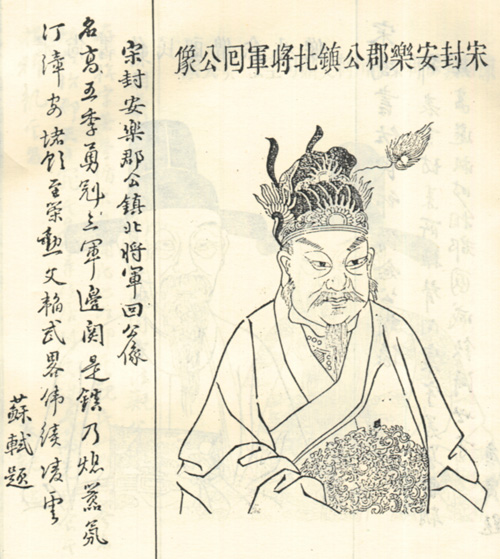 宋封安樂郡公鎮北將軍囘公像
宋封安樂郡公鎮北將軍回公像
名高五季勇冠三軍邊関是鎮乃熄氛
汀漳安堵至榮勳文韜武畧偉績凌雲
蘇軾題